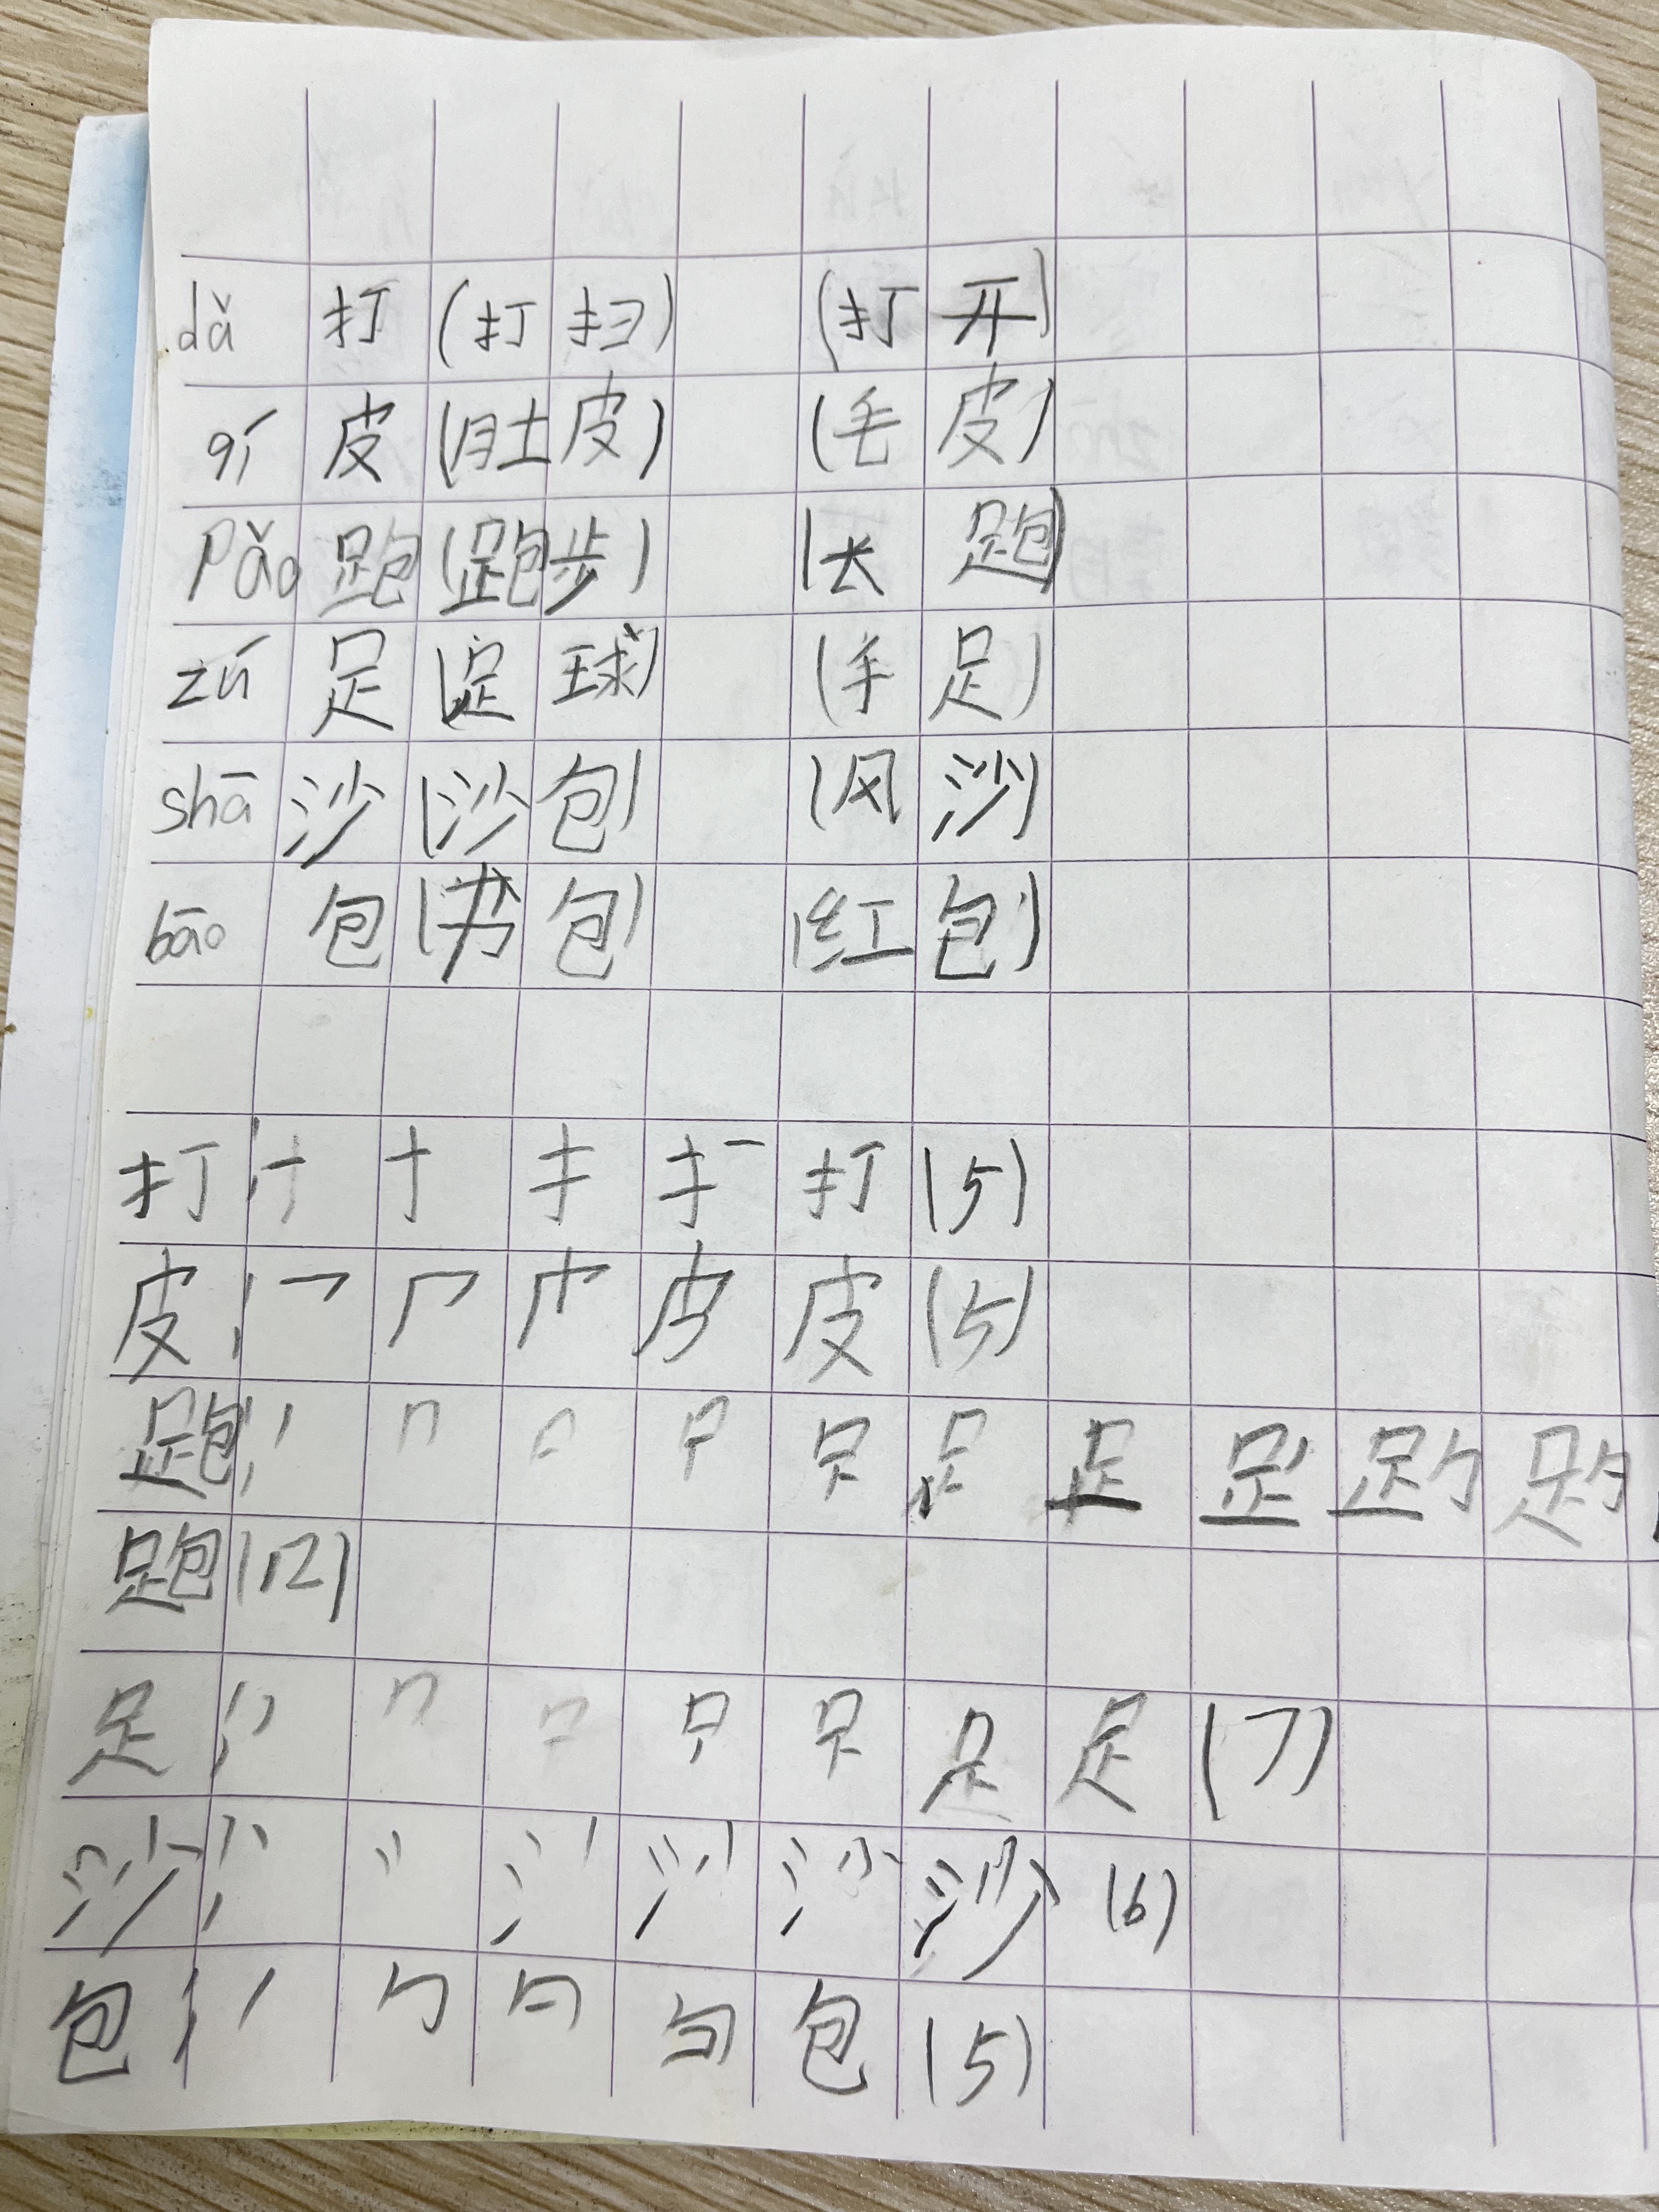 dǎ 打 (打扫) (打开)
qí 皮 (肚皮) (毛皮)
pǎo 跑 (跑步) (长跑)
zú 足 (足球) (手足)
shā 沙 (沙包) (风沙)
bāo 包 (书包) (红包)
打: 一 十 扌 扌一 打 (5)
皮: 乛 厂 皮 (5)
跑: 丨 冂 口 足
跑 (12)
足: 丨 冂 口 足 (7)
沙: 丶 冫 氵 沙 (6)
包: 丿 勹 包 (5)